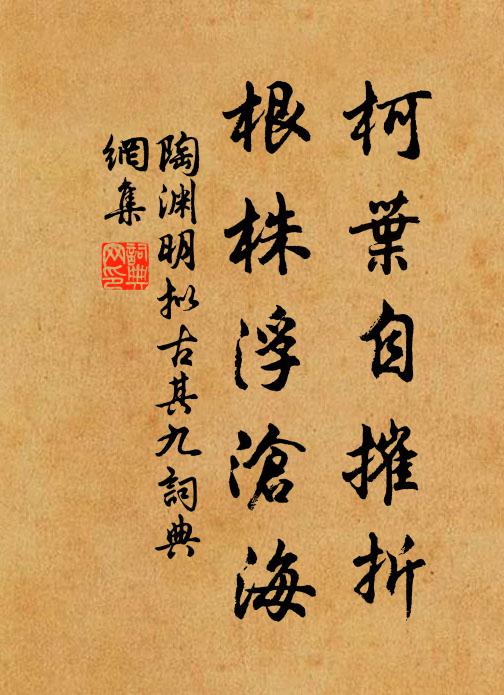 柯葉自摧折
根株浮滄海
陶渊明拟古其九詞典
網集
詞典
网印